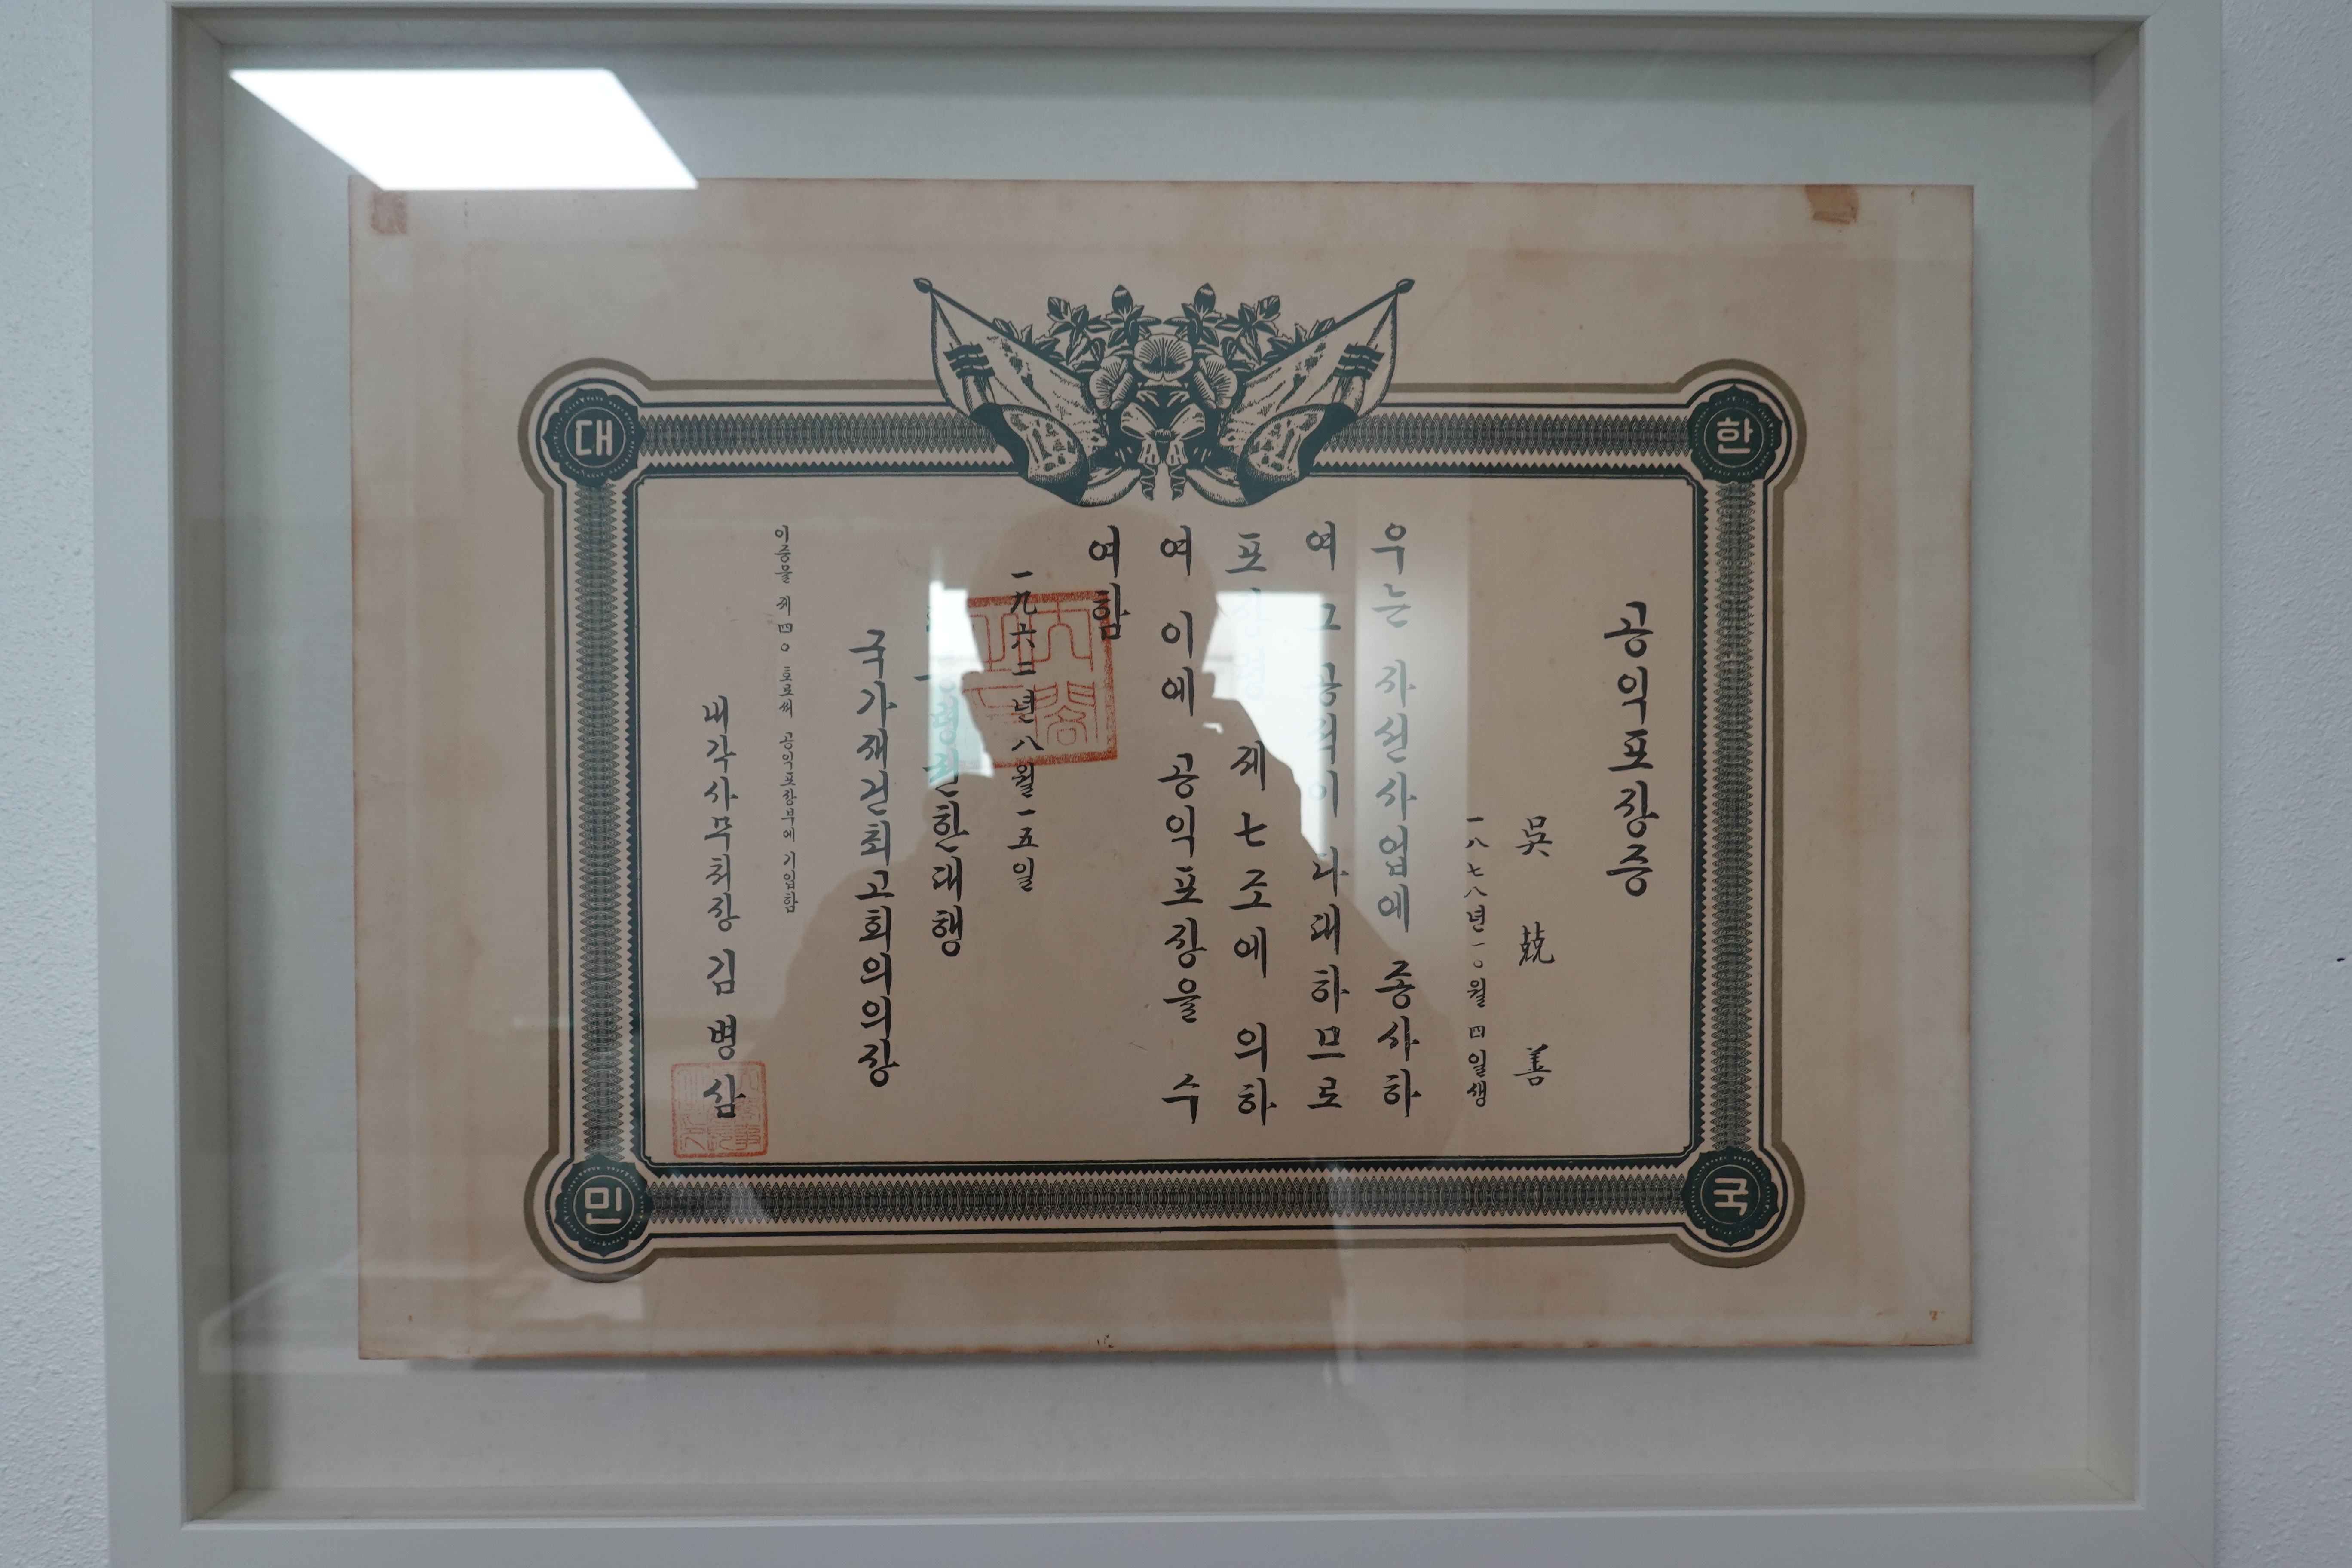 대 한
민 국
공익포장증
吳 兢 善
一八七八년一〇월四일생
우는 자선사업에 종사하
여 그 공적이 다대하므로
포장령 제七조에 의하
여 이에 공익포장을 수
여함
一九六二년八월一五일
권한대행
국가재건최고회의의장
이증을 제四〇호로써 공익포장부에 기입함
내각사무처장 김병삼